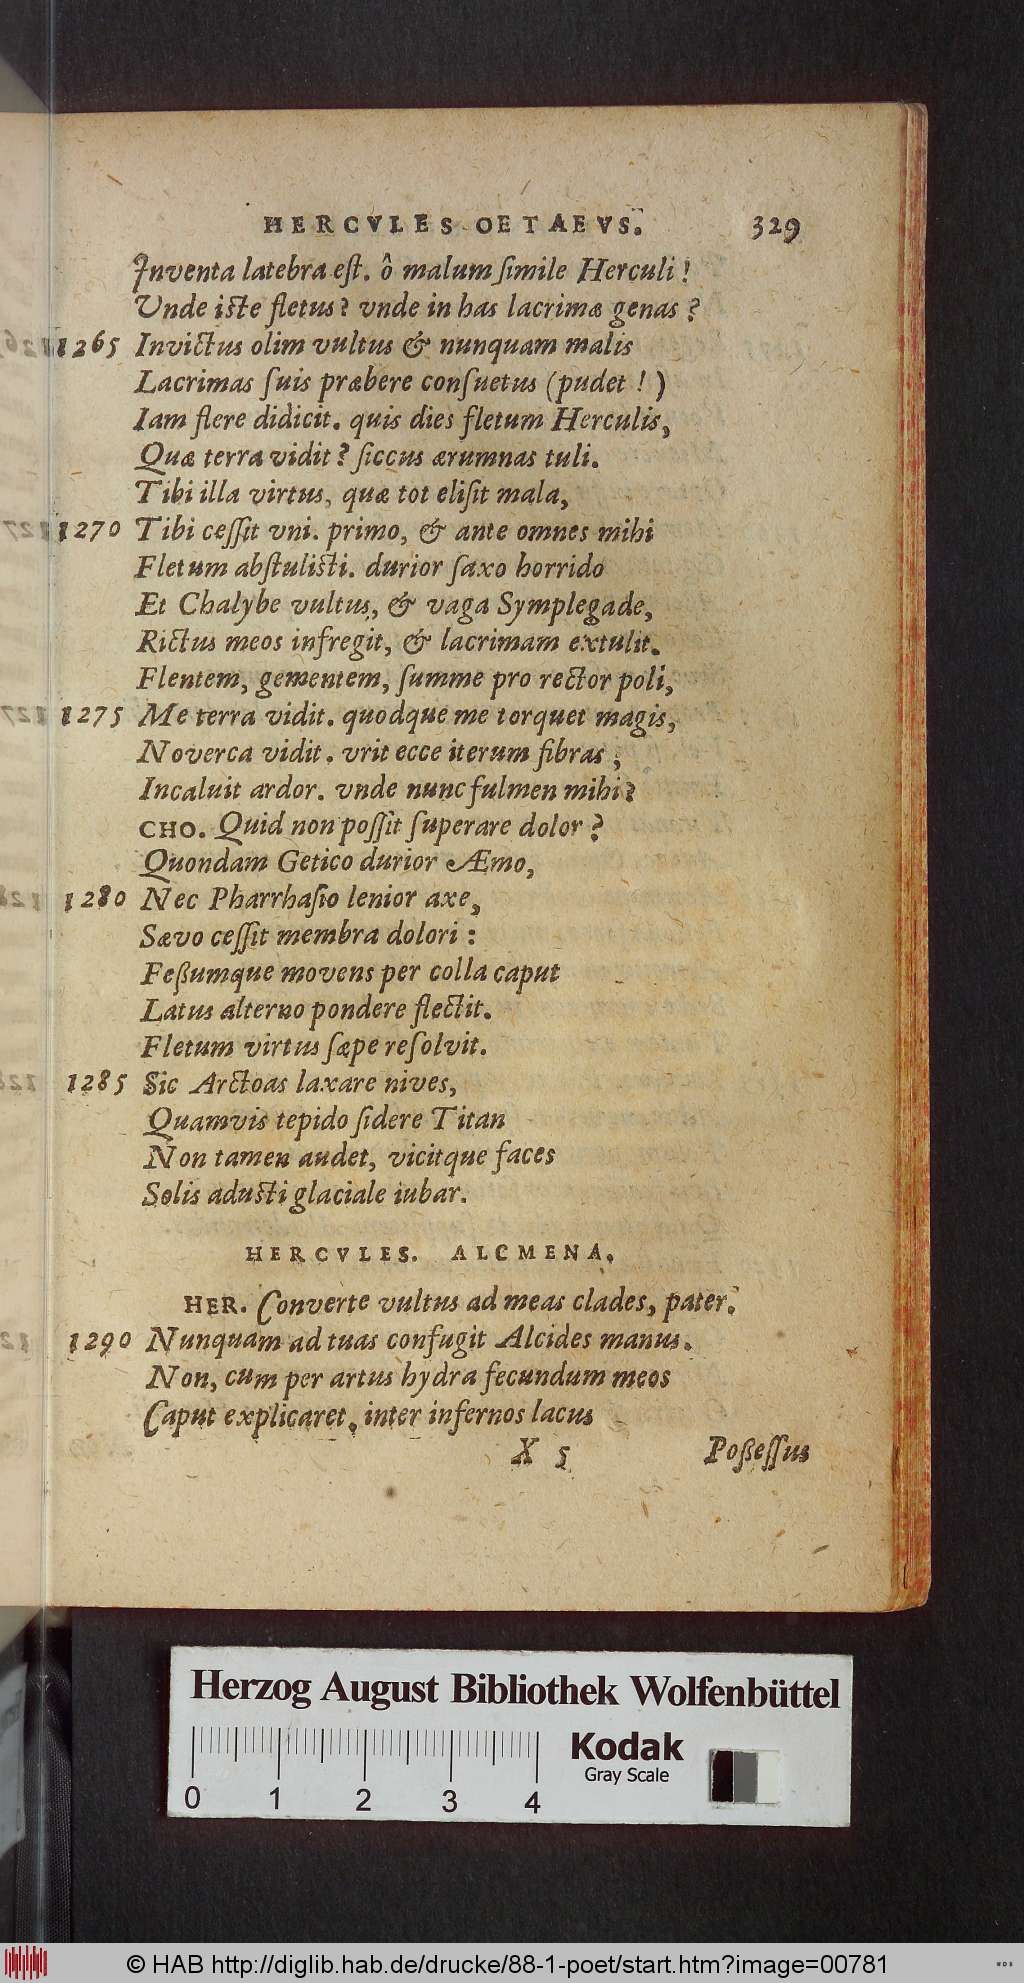 HERCVLES OETAEVS. 329
Inventa latebra eſt. ô malum ſimile Herculi!
Unde iſte fletus? vnde in has lacrimæ genas?
1265 Invictus olim vultus & nunquam malis
Lacrimas ſuis præbere conſuetus (pudet!)
Iam flere didicit. quis dies fletum Herculis,
Quæ terra vidit? ſiccus ærumnas tuli.
Tibi illa virtus, quæ tot eliſit mala,
1270 Tibi ceſſit vni. primo, & ante omnes mihi
Fletum abſtuliſti. durior ſaxo horrido
Et Chalybe vultus, & vaga Symplegade,
Rictus meos infregit, & lacrimam extulit.
Flentem, gementem, ſumme pro rector poli,
1275 Me terra vidit. quodque me torquet magis,
Noverca vidit. vrit ecce iterum fibras;
Incaluit ardor. vnde nunc fulmen mihi?
CHO. Quid non poſſit ſuperare dolor?
Quondam Getico durior Æmo,
1280 Nec Pharrhaſio lenior axe,
Sævo ceſſit membra dolori:
Feßumque movens per colla caput
Latus alterno pondere flectit.
Fletum virtus ſæpe reſolvit.
1285 Sic Arctoas laxare nives,
Quamvis tepido ſidere Titan
Non tamen audet, vicitque faces
Solis aduſti glaciale iubar.
HERCVLES. ALCMENA.
HER. Converte vultus ad meas clades, pater.
1290 Nunquam ad tuas confugit Alcides manus.
Non, cum per artus hydra fecundum meos
Caput explicaret. inter infernos lacus
X 5 Poßeſſus
Herzog August Bibliothek Wolfenbüttel
Kodak
Gray Scale
0 1 2 3 4
© HAB http://diglib.hab.de/drucke/88-1-poet/start.htm?image=00781